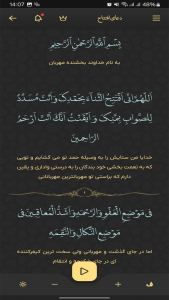 14:07
48%
دعای افتتاح
بِسْمِ اللَّهِ الرَّحْمٰنِ الرَّحِيمِ
به نام خداوند بخشنده مهربان
اللّٰهُمَّ إِنِّي أَفْتَتِحُ الثَّنَاءَ بِحَمْدِكَ وَ أَنْتَ مُسَدِّدٌ
لِلصَّوَابِ بِمَنِّكَ وَ أَيْقَنْتُ أَنَّكَ أَنْتَ أَرْحَمُ
الرَّاحِمِينَ
خدایا من ستایش را به وسیله حمد تو می گشایم و تویی
که به نعمت بخشی خود بندگان را به درستی واداری و یقین
دارم که براستی تو مهربانترین مهربانانی
۱
فِي مَوْضِعِ الْعَفْوِ وَ الرَّحْمَةِ وَ أَشَدُّ الْمُعَاقِبِينَ فِي
مَوْضِعِ النَّكَالِ وَ النَّقِمَةِ
اما در جای گذشت و مهربانی ولی سخت ترین کیفرکننده
ای در جای و انتقام